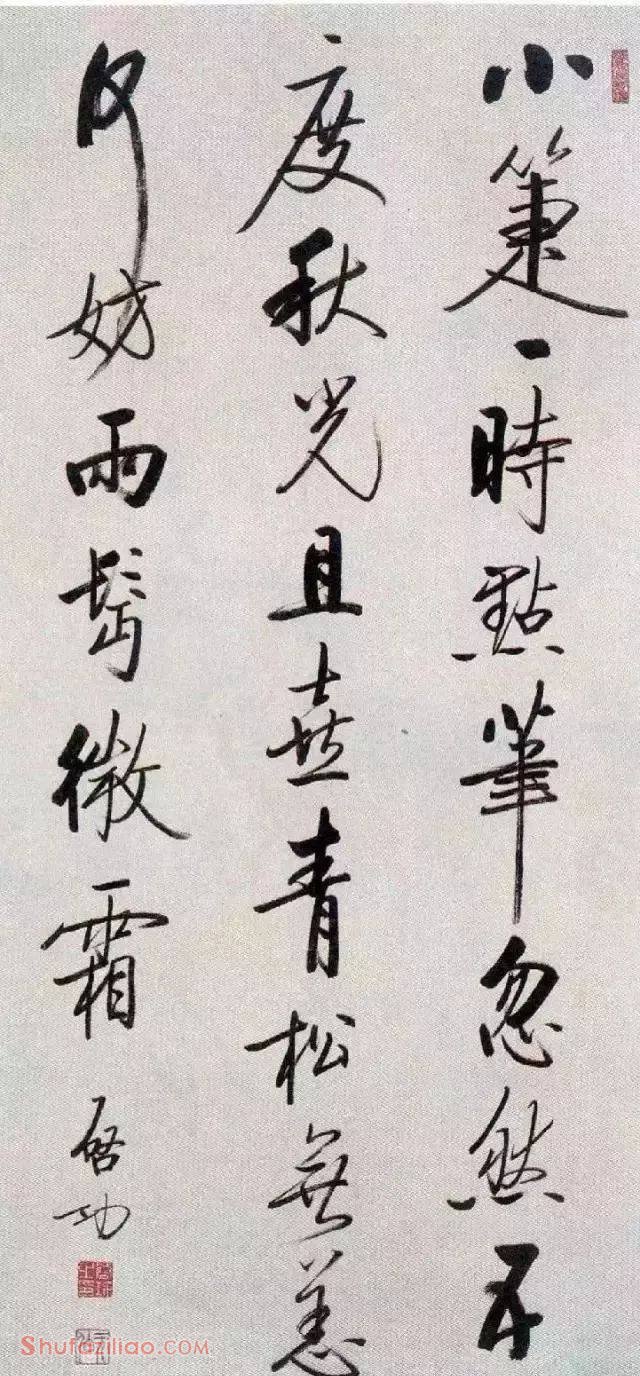 小箑一時點筆忽然五
度秋光且喜青松無恙
何妨兩鬢微霜
启功
Shufaziliao.com